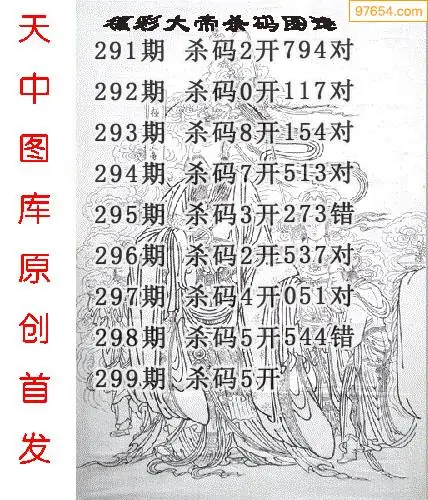 97654.com
福彩大帝杀码图迷
天中图库原创首发
291期 杀码2开794对
292期 杀码0开117对
293期 杀码8开154对
294期 杀码7开513对
295期 杀码3开273错
296期 杀码2开537对
297期 杀码4开051对
298期 杀码5开544错
299期 杀码5开